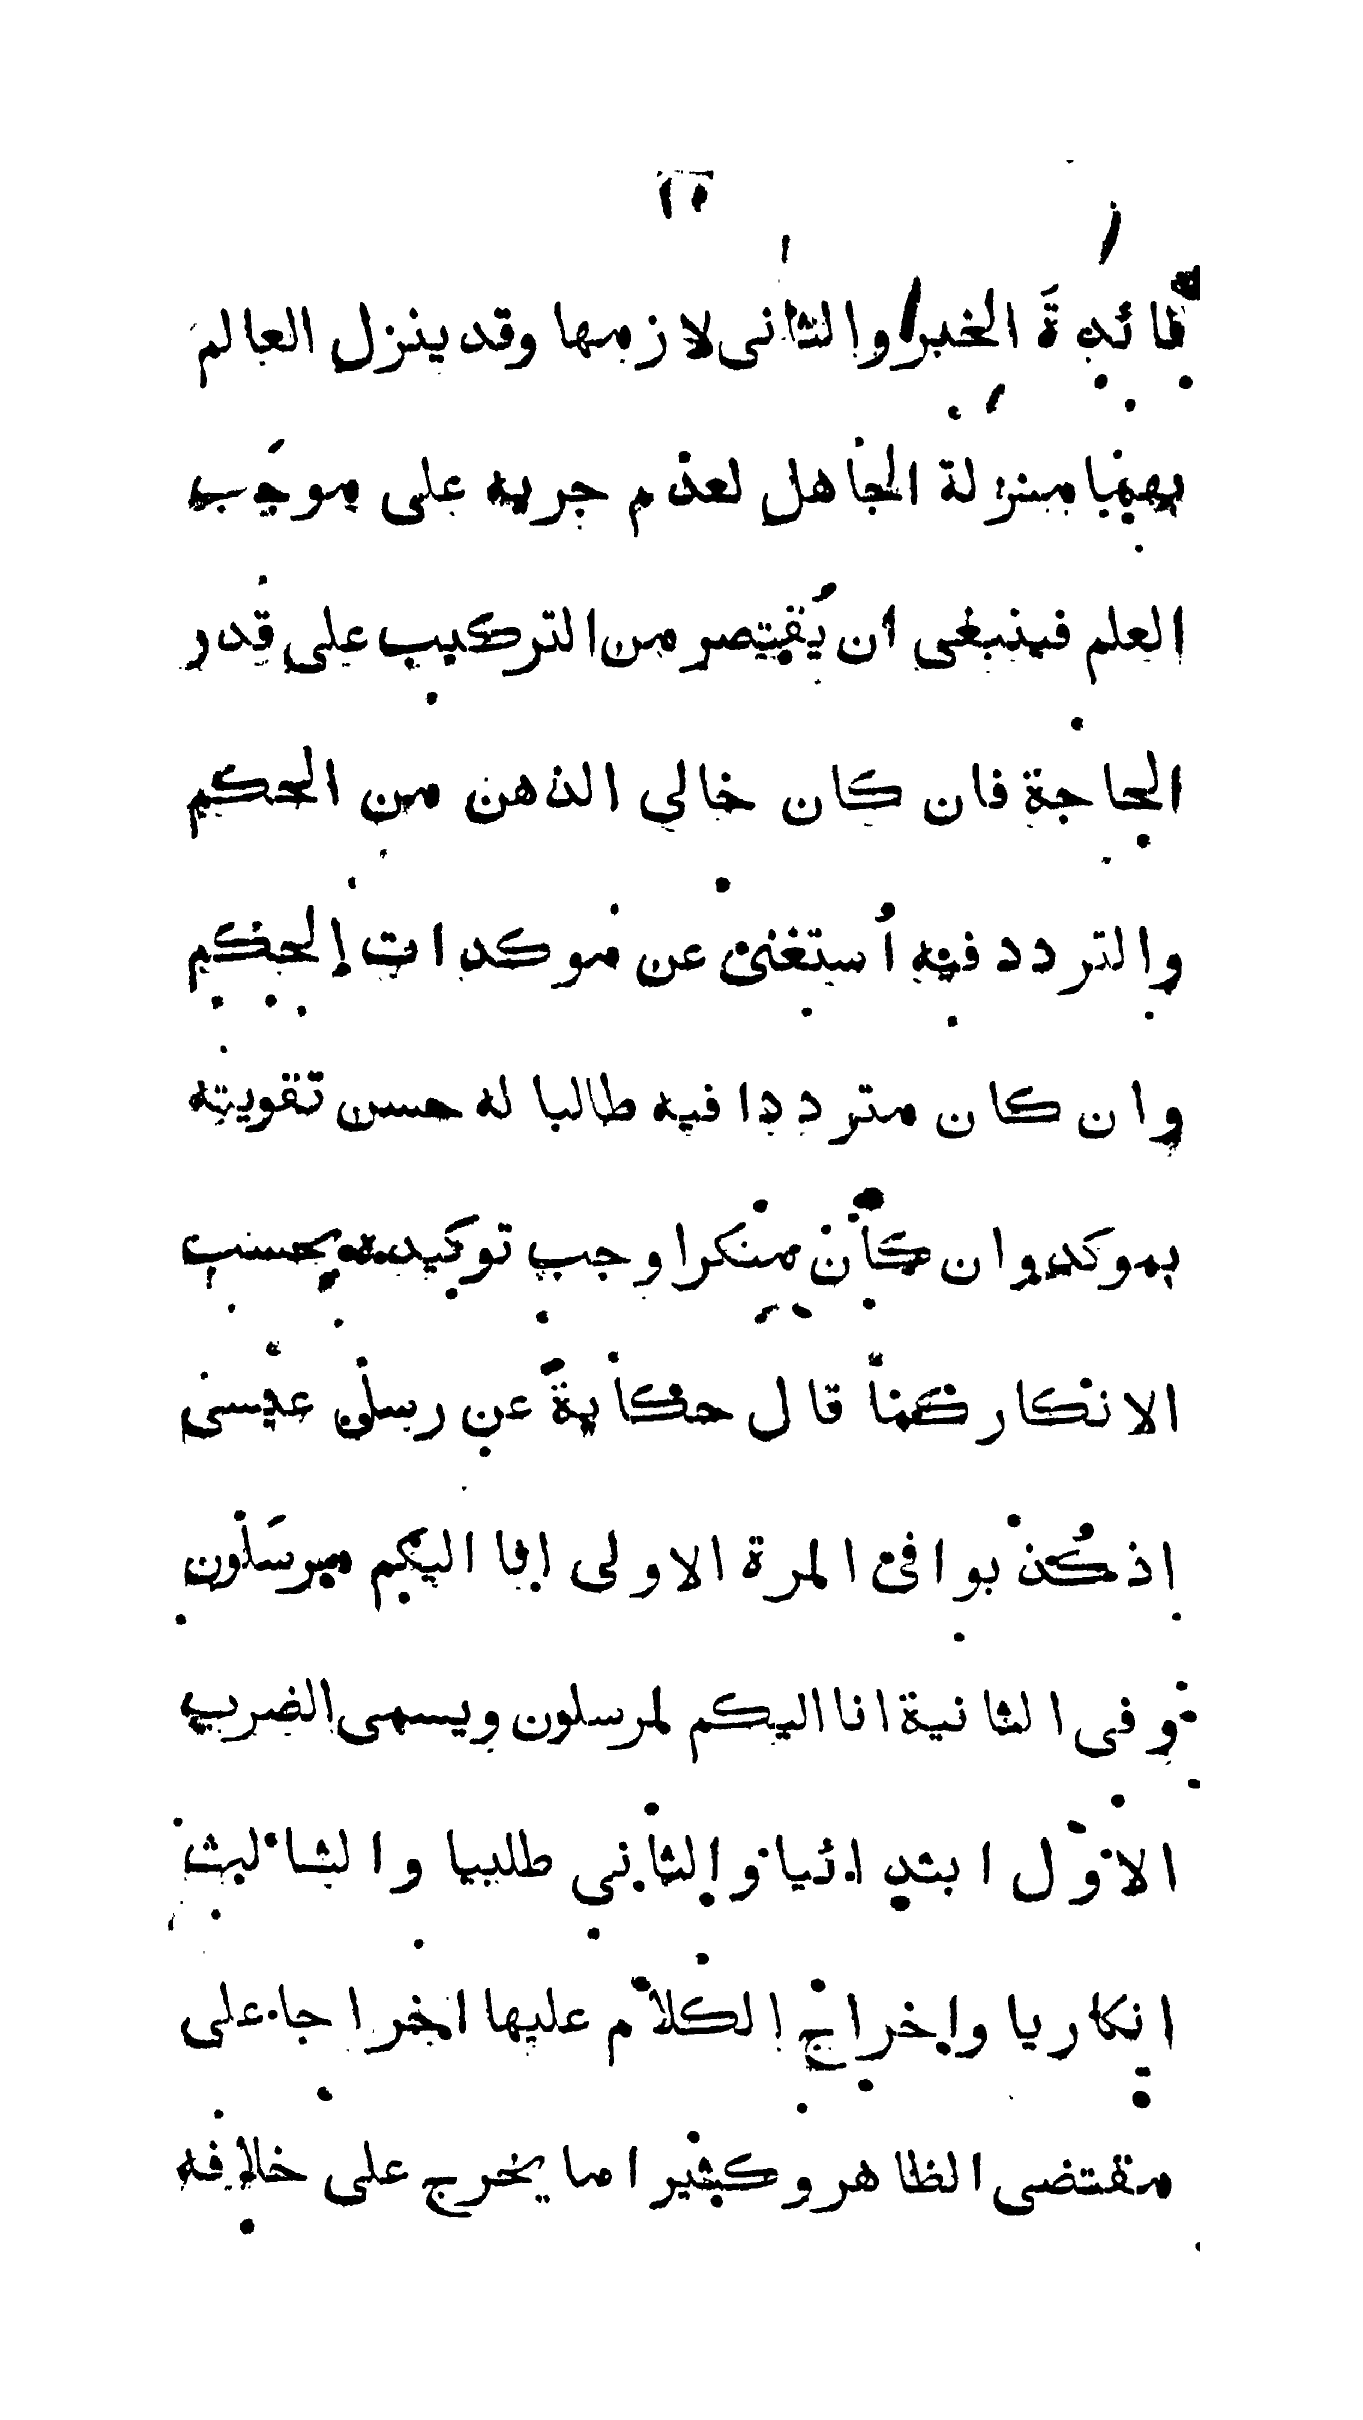 ١٥
فائدة الخبر والثاني لازمها وقد ينزل العالم
بهما منزلة الجاهل لعدم جريه على موجب
العلم فينبغى ان يُقتصر من التركيب على قدر
الحاجة فان كان خالي الذهن من الحكم
والتردد فيه اُستغنى عن موكدات الحكم
وان كان مترددا فيه طالبا له حسن تقويته
بموكد وان كان منكرا وجب توكيده بحسب
الانكار كما قال حكايةً عن رسل عيسى
اذ كُذبوا فى المرة الاولى انا اليكم مرسلون
و فى الثانية انا اليكم لمرسلون ويسمى الضرب
الاوّل ابتدائيا والثاني طلبيا والثالث
انكاريا واخراج الكلام عليها اخراجا على
مقتضى الظاهر وكثيرا ما يخرج على خلافه